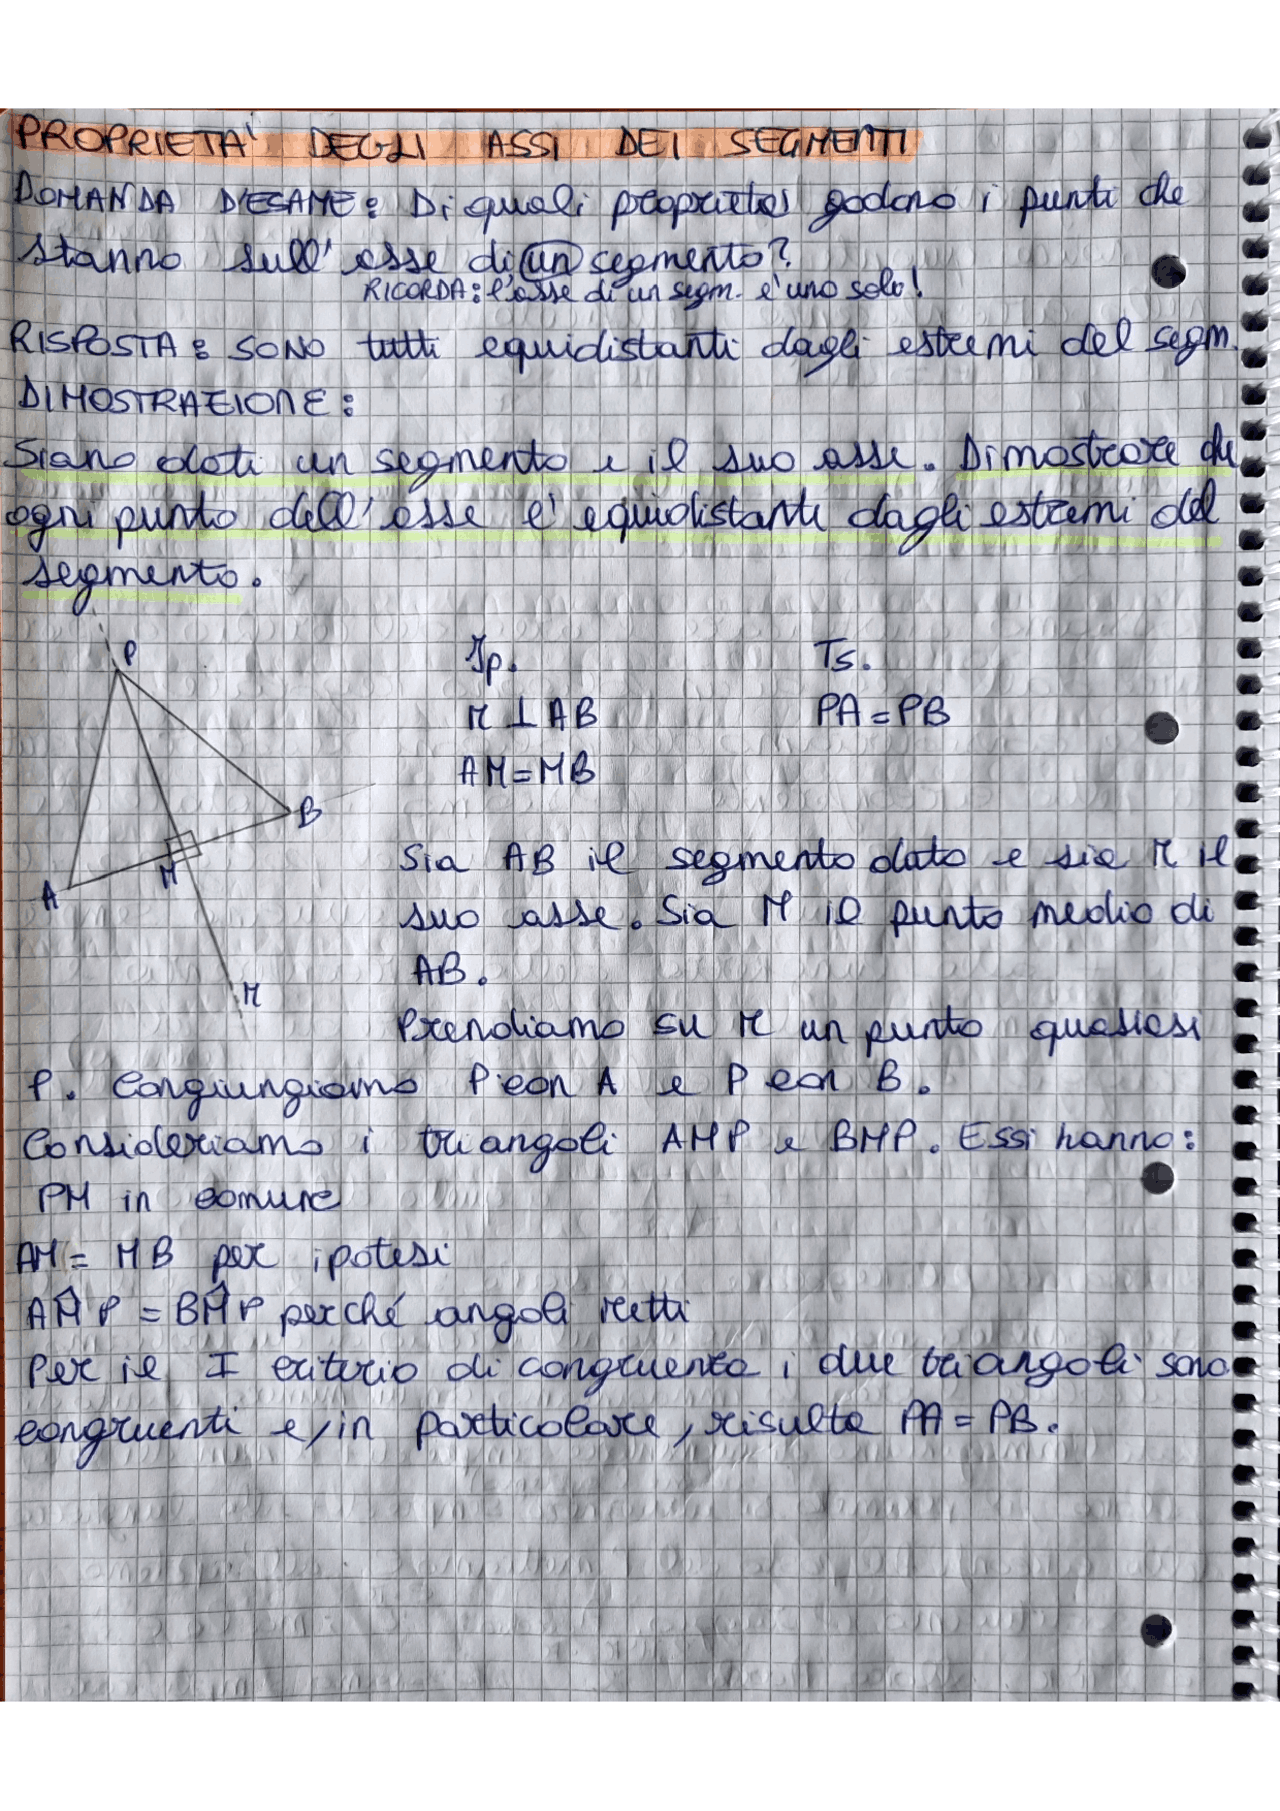 PROPRIETA' DEGLI ASSI DEI SEGMENTI
DOMANDA D'ESAME: Di quali proprietà godono i punti che
stanno sull'asse di un segmento?
RICORDA: l'asse di un segm. è uno solo!
RISPOSTA: SONO tutti equidistanti dagli estremi del segm.
DIMOSTRAZIONE:
Siano dati un segmento e il suo asse. Dimostrare che
ogni punto dell'asse è equidistante dagli estremi del
segmento.
P
Ip. Ts.
r ⊥ AB PA = PB
AM = MB
B
M
A
Sia AB il segmento dato e sia r il
suo asse. Sia M il punto medio di
AB.
r
Prendiamo su r un punto qualsiasi
P. Congiungiamo P con A e P con B.
Consideriamo i triangoli AMP e BMP. Essi hanno:
PM in comune
AM = MB per ipotesi
AM̂P = BM̂P perché angoli retti
Per il I criterio di congruenza i due triangoli sono
congruenti e, in particolare, risulta PA = PB.